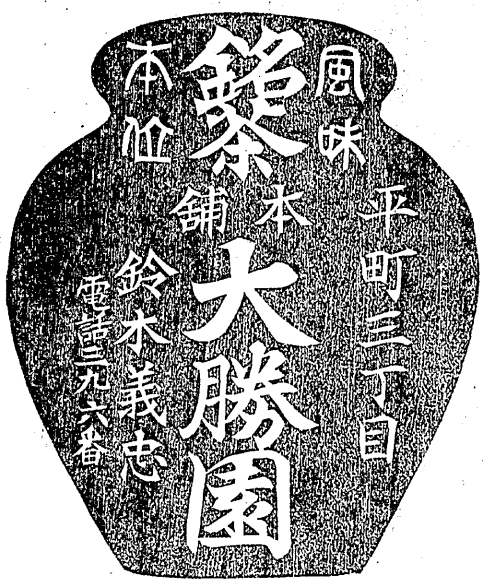 風味
本位
平町三丁目
銘茶
本舗
大勝園
鈴木義忠
電話三九六番